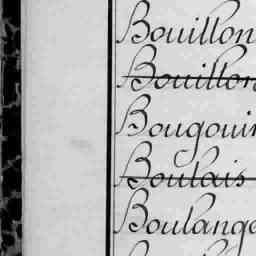 Bouillon
Bouillon
Bougouin
Boulais
Boulange